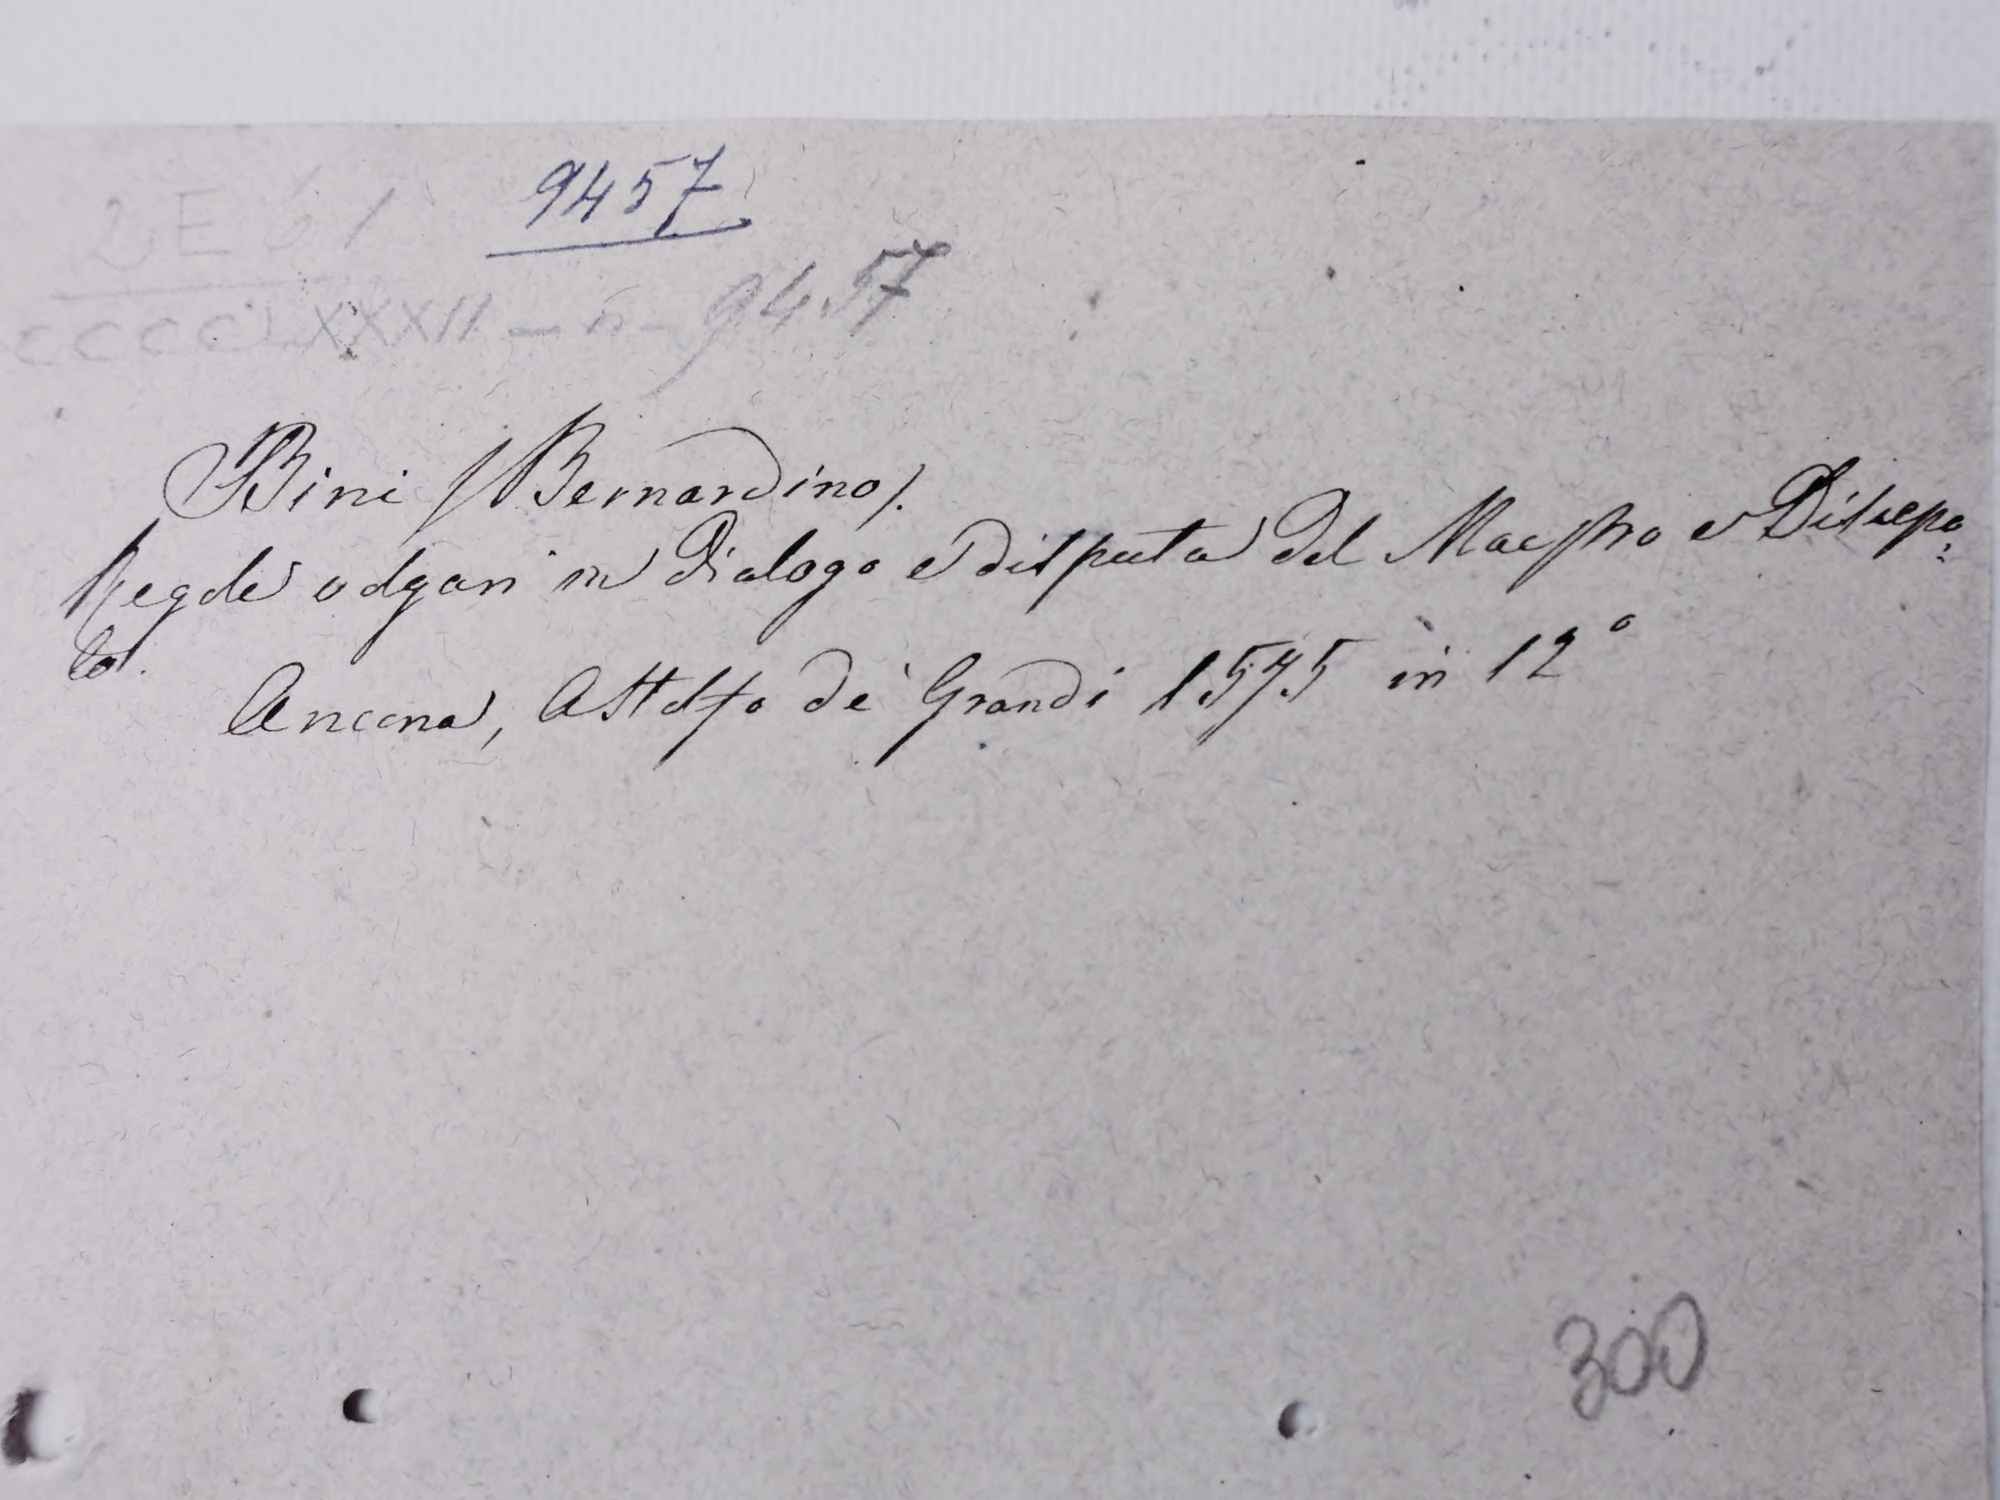 9457
2 E 61
CCCCLXXXII — 6 — 9457
Bini /Bernardino/.
Regole odgan in Dialogo e disputa del Maestro e Discepo
lo.
Ancona, Astolfo de Grandi 1575 in 12°
300